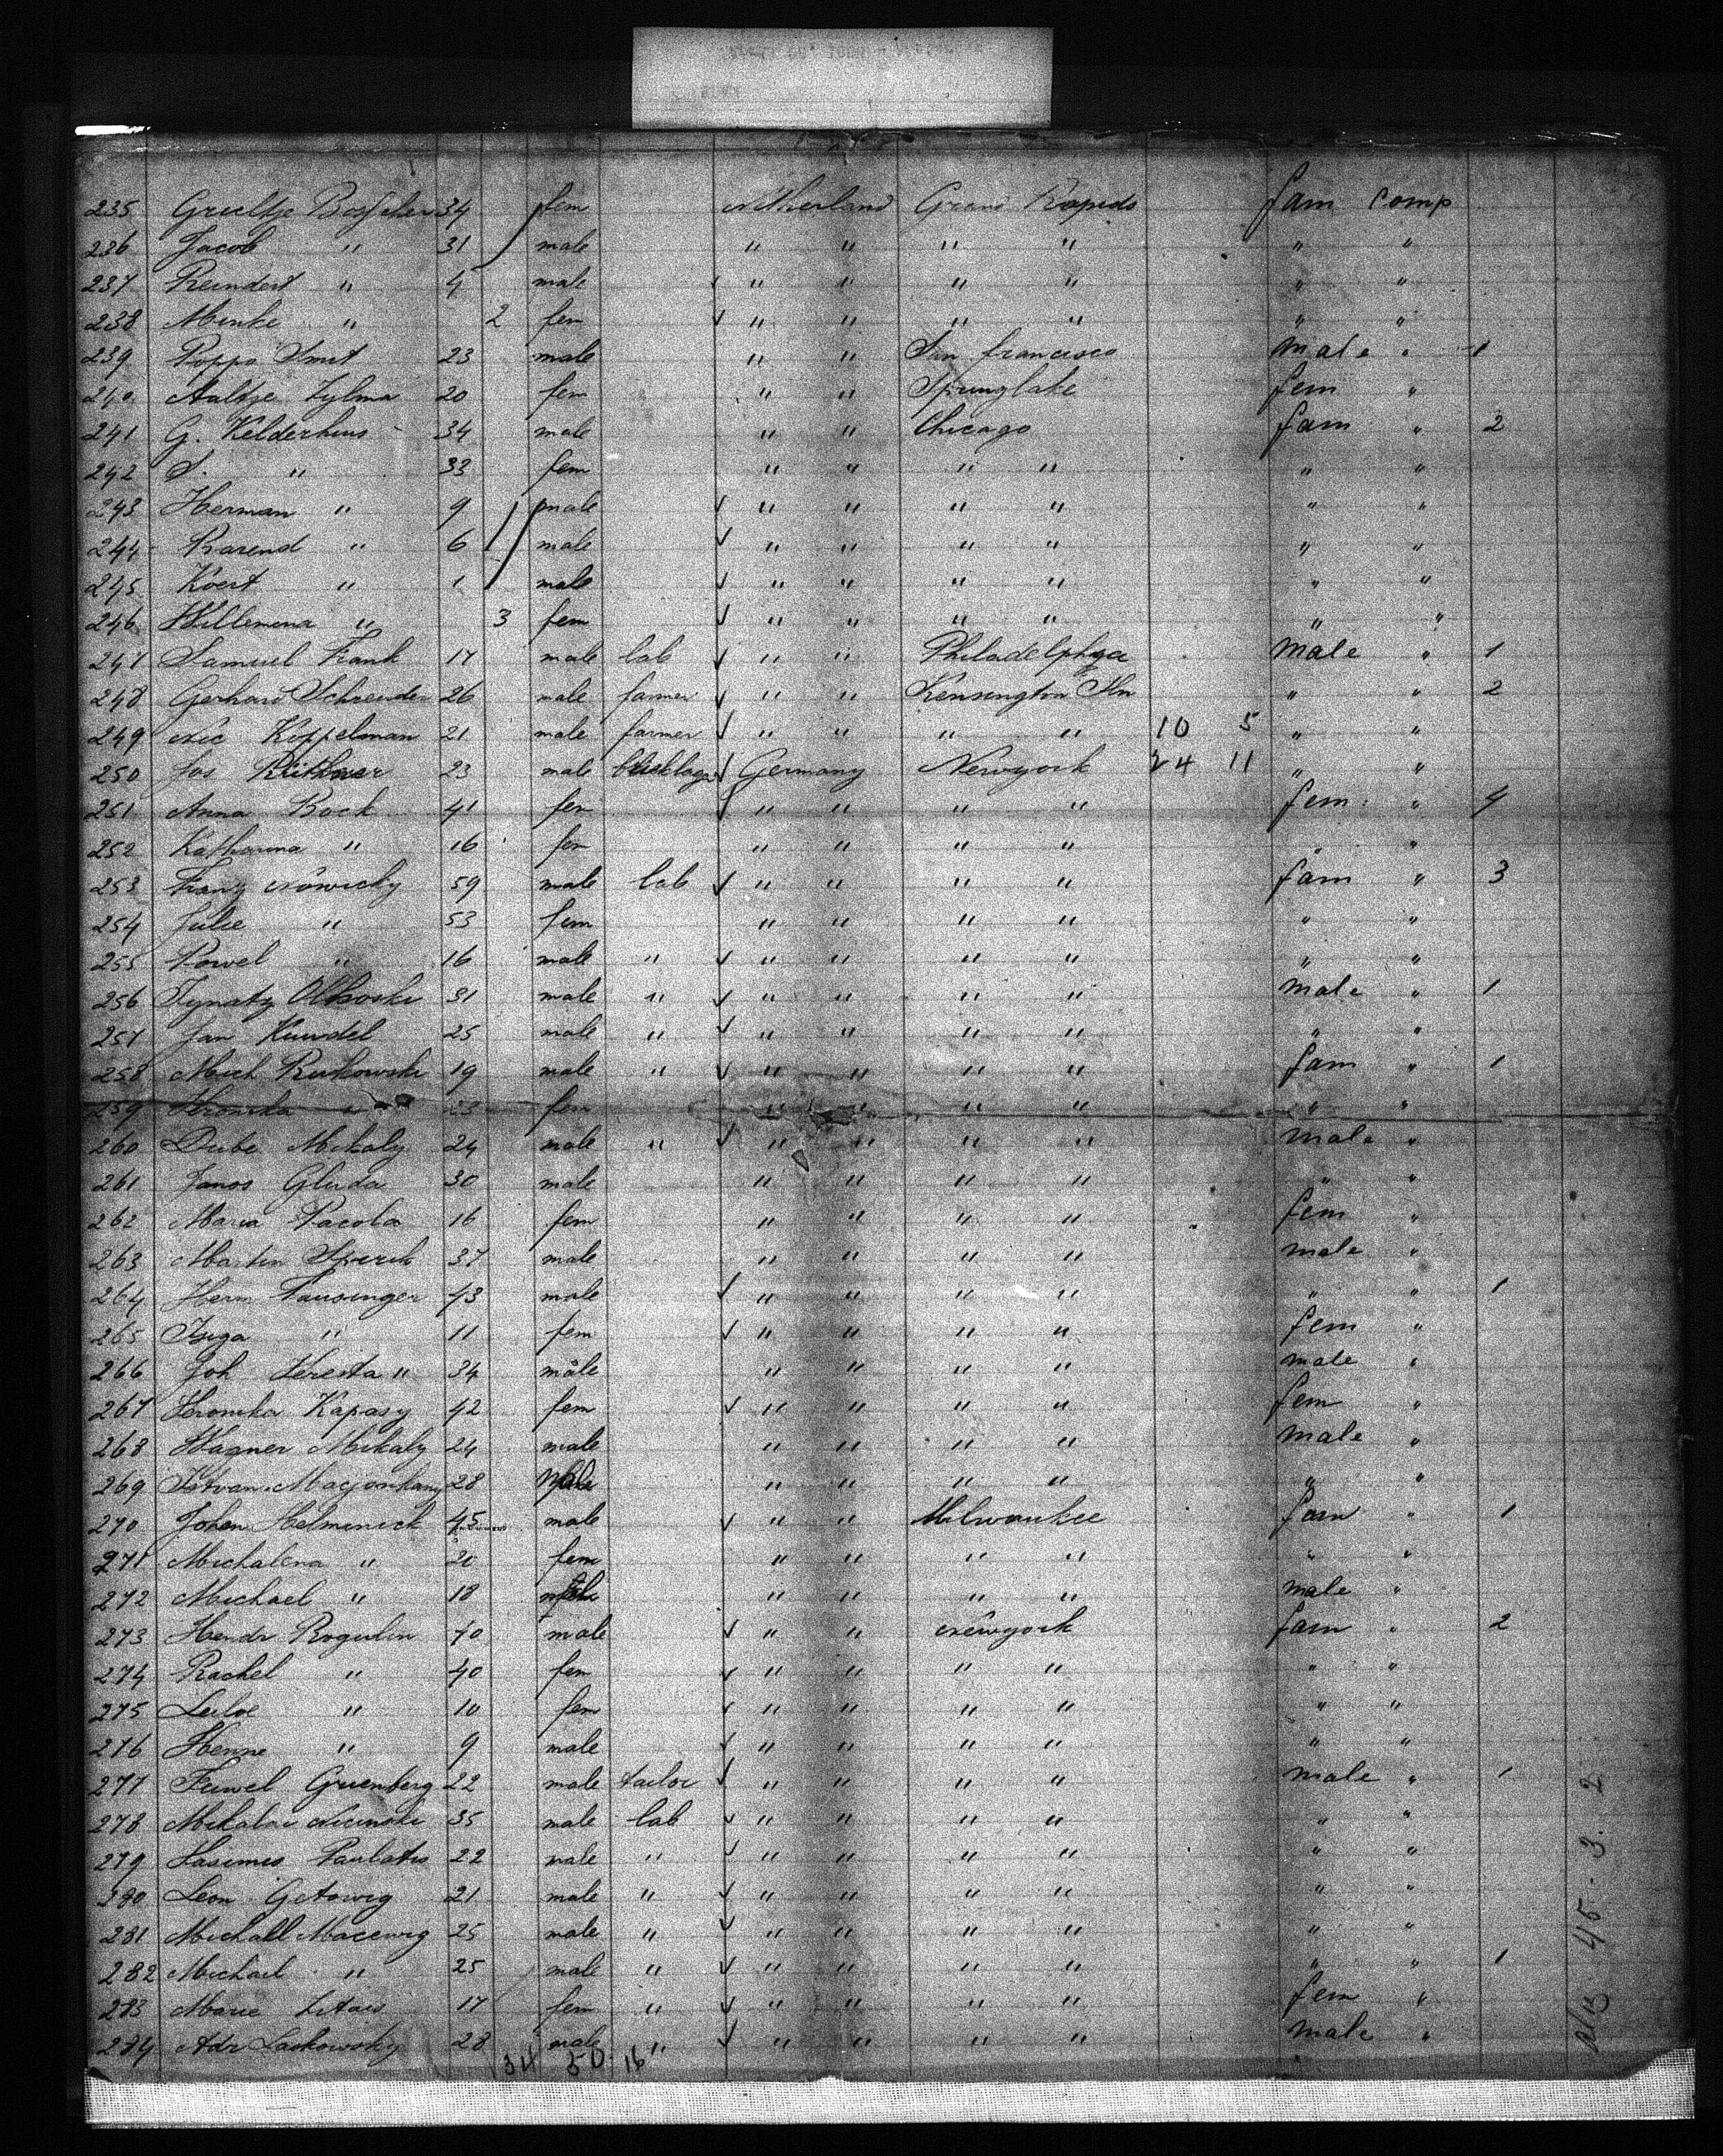 235 Grieltje Bosscher 34 fem Netherland Grand Rapids fam comp
236 Jacob " 31 male " " " " " "
237 Reindert " 4 male " " " " " "
238 Menke " 2 fem " " " " " "
239 Poppo Smit 23 male " " San francisco male " 1
240 Aaltje Zylma 20 fem " " Springlake fem "
241 G. Kelderhuis 34 male " " Chicago fam " 2
242 S. " 33 fem " " " " " "
243 Herman " 9 male " " " " " "
244 Barend " 6 male " " " " " "
245 Koert " 1 male " " " " " "
246 Willemena " 3 fem " " " " " "
247 Samuel Frank 17 male lab " " Philadelphya male " 1
248 Gerhard Schreuder 26 male farmer " " Kensington " " 2
249 Nic Koppelman 21 male farmer " " " " 10 5 " "
250 Jos 23 male Germany Newyork 24 11 " "
251 Anna Bock 41 fem " " " " fem " 4
252 Katharina " 16 fem " " " " " "
253 Franz Nowicky 59 male lab " " " " fam " 3
254 Julie " 53 fem " " " " " "
255 Pawel " 16 male " " " " " " "
256 Ignatz 31 male " " " " " male " 1
257 Jan 25 male " " " " " " "
258 Mich Rutkowski 19 male " " " " " fam " 1
259 Veronika " 23 fem " " " " " "
260 Dube Mikaly 24 male " " " " " male "
261 Janos Gluda 30 male " " " " " "
262 Maria Pacola 16 fem " " " " fem "
263 Martin 37 male " " " " male "
264 Herm Pausinger 43 male " " " " " " 1
265 " 11 fem " " " " fem "
266 Joh Keresta " 34 male " " " " male "
267 Veronika Kapasy 42 fem " " " " fem "
268 Wagner Mikaly 24 male " " " " male "
269 Istvan 28 male " " " " " "
270 Johen Helminick 45 male " " Milwaukee fam " 1
271 Michalena " 20 fem " " " " " "
272 Michael " 18 male " " " " male "
273 Hendr Rogulin 40 male " " Newyork fam " 2
274 Rachel " 40 fem " " " " " "
275 " 10 fem " " " " " "
276 Henne " 9 male " " " " " "
277 Gruenberg 22 male tailor " " " " male " 1
278 Mikalai 35 male lab " " " " " "
279 Paulatis 22 male " " " " " " "
280 Leon 21 male " " " " " " "
281 Michall Macewig 25 male " " " " " " "
282 Michael " 25 male " " " " " " " 1
283 Marie 17 fem " " " " " fem "
284 Adr Laskowsky 28 male " " " " " male "
34 50 16
45-3.2